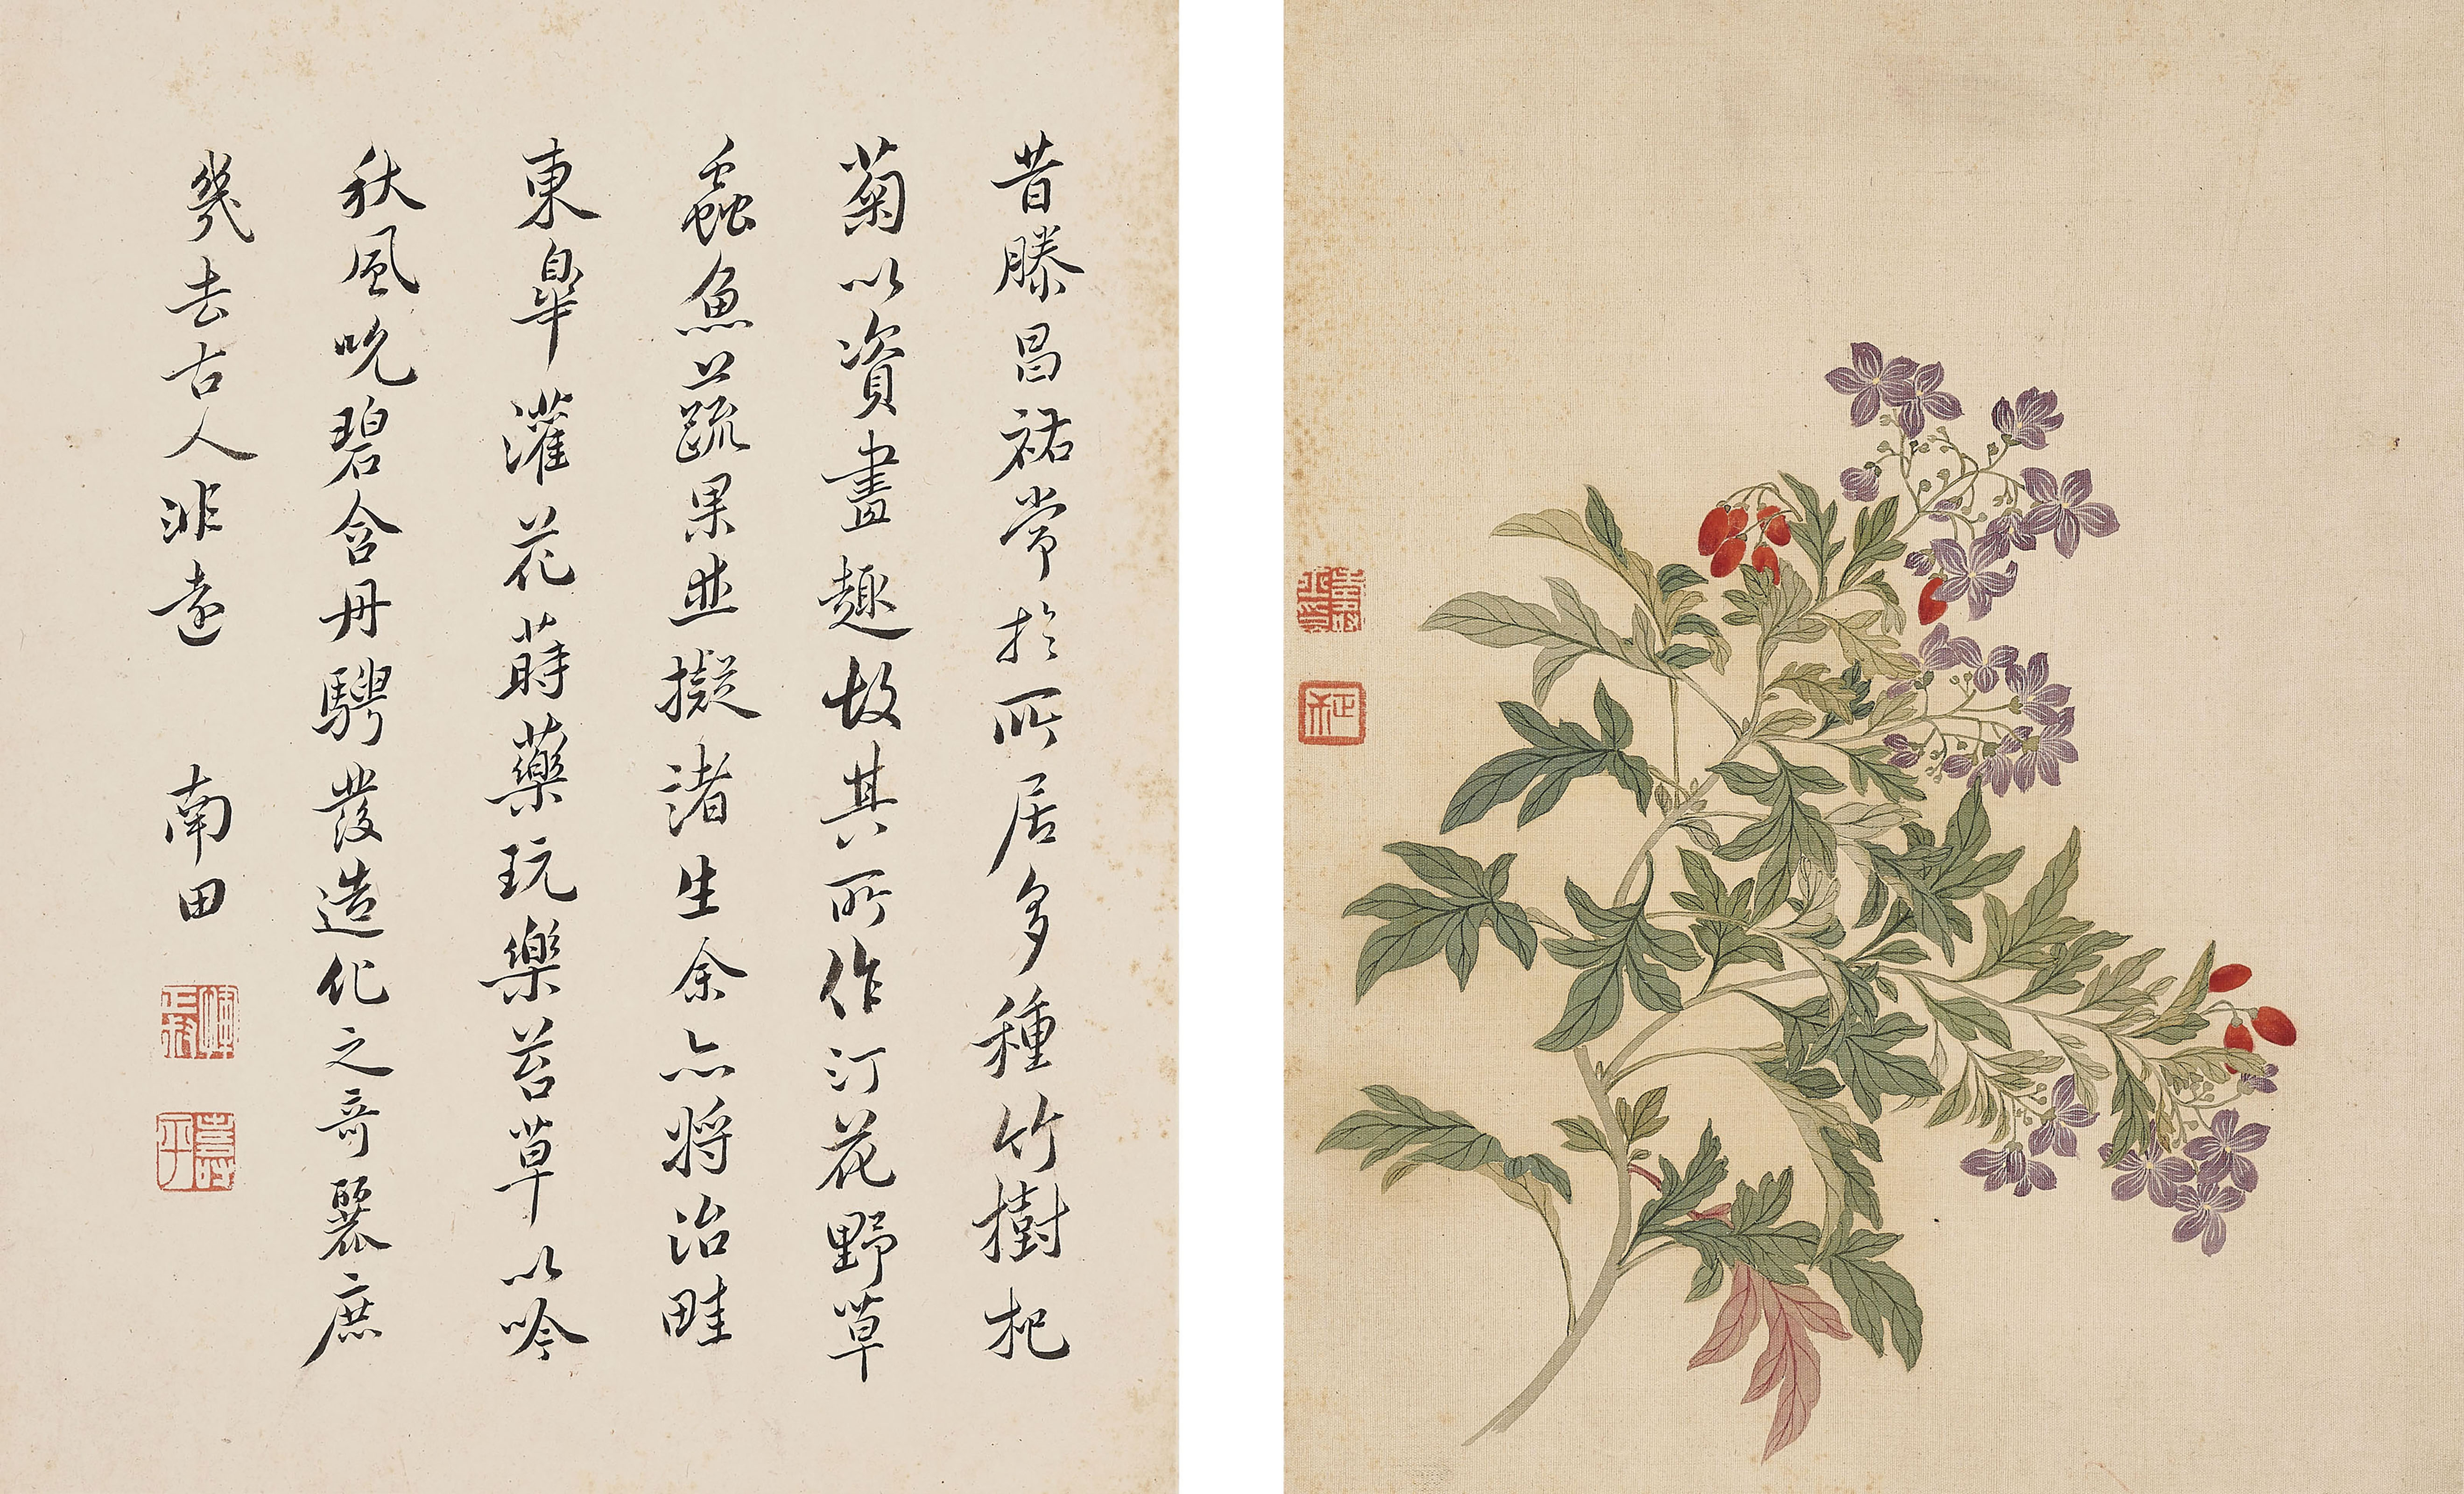 昔滕昌祐常於所居多種竹樹杞
菊以資畫趣故其所作汀花野草
蟲魚蔬果並擬諸生余亦將治畦
東皋灌花蒔藥玩樂苕草以吟
秋風吮碧含丹騁發造化之奇麗庶
幾去古人非遠 南田
壽平